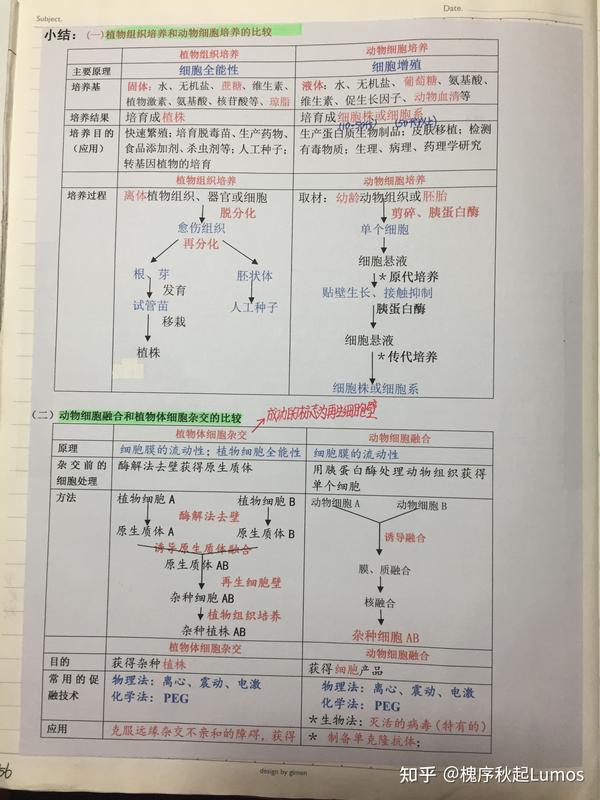 Subject.
Date.
小结：（一）植物组织培养和动物细胞培养的比较
植物组织培养 动物细胞培养
主要原理 细胞全能性 细胞增殖
培养基 固体：水、无机盐、蔗糖、维生素、 液体：水、无机盐、葡萄糖、氨基酸、
植物激素、氨基酸、核苷酸等、琼脂 维生素、促生长因子、动物血清等
培养结果 培育成植株 培育成细胞株或细胞系
培养目的 快速繁殖；培育脱毒苗、生产药物、 生产蛋白质生物制品；皮肤移植；检测
（应用） 食品添加剂、杀虫剂等；人工种子； 有毒物质；生理、病理、药理学研究
转基因植物的培育
植物组织培养 动物细胞培养
培养过程 离体植物组织、器官或细胞 取材：幼龄动物组织或胚胎
脱分化 剪碎、胰蛋白酶
愈伤组织 单个细胞
再分化
细胞悬液
根 芽 胚状体 *原代培养
发育 贴壁生长、接触抑制
试管苗 人工种子 胰蛋白酶
移栽
细胞悬液
植株 *传代培养
细胞株或细胞系
（二）动物细胞融合和植物体细胞杂交的比较
成功的标志为再生细胞壁
植物体细胞杂交 动物细胞融合
原理 细胞膜的流动性；植物细胞全能性 细胞膜的流动性
杂交前的 酶解法去壁获得原生质体 用胰蛋白酶处理动物组织获得
细胞处理 单个细胞
方法 植物细胞 A 植物细胞 B 动物细胞 A 动物细胞 B
酶解法去壁
原生质体 A 原生质体 B 诱导融合
诱导原生质体融合
原生质体 AB 膜、质融合
再生细胞壁
杂种细胞 AB 核融合
植物组织培养
杂种植株 AB 杂种细胞 AB
植物体细胞杂交 动物细胞融合
目的 获得杂种植株 获得细胞产品
常用的促 物理法：离心、震动、电激 物理法：离心、震动、电激
融技术 化学法：PEG 化学法：PEG
*生物法：灭活的病毒（特有的）
应用 克服远缘杂交不亲和的障碍，获得 * 制备单克隆抗体；
design by gimen
知乎 @槐序秋起Lumos